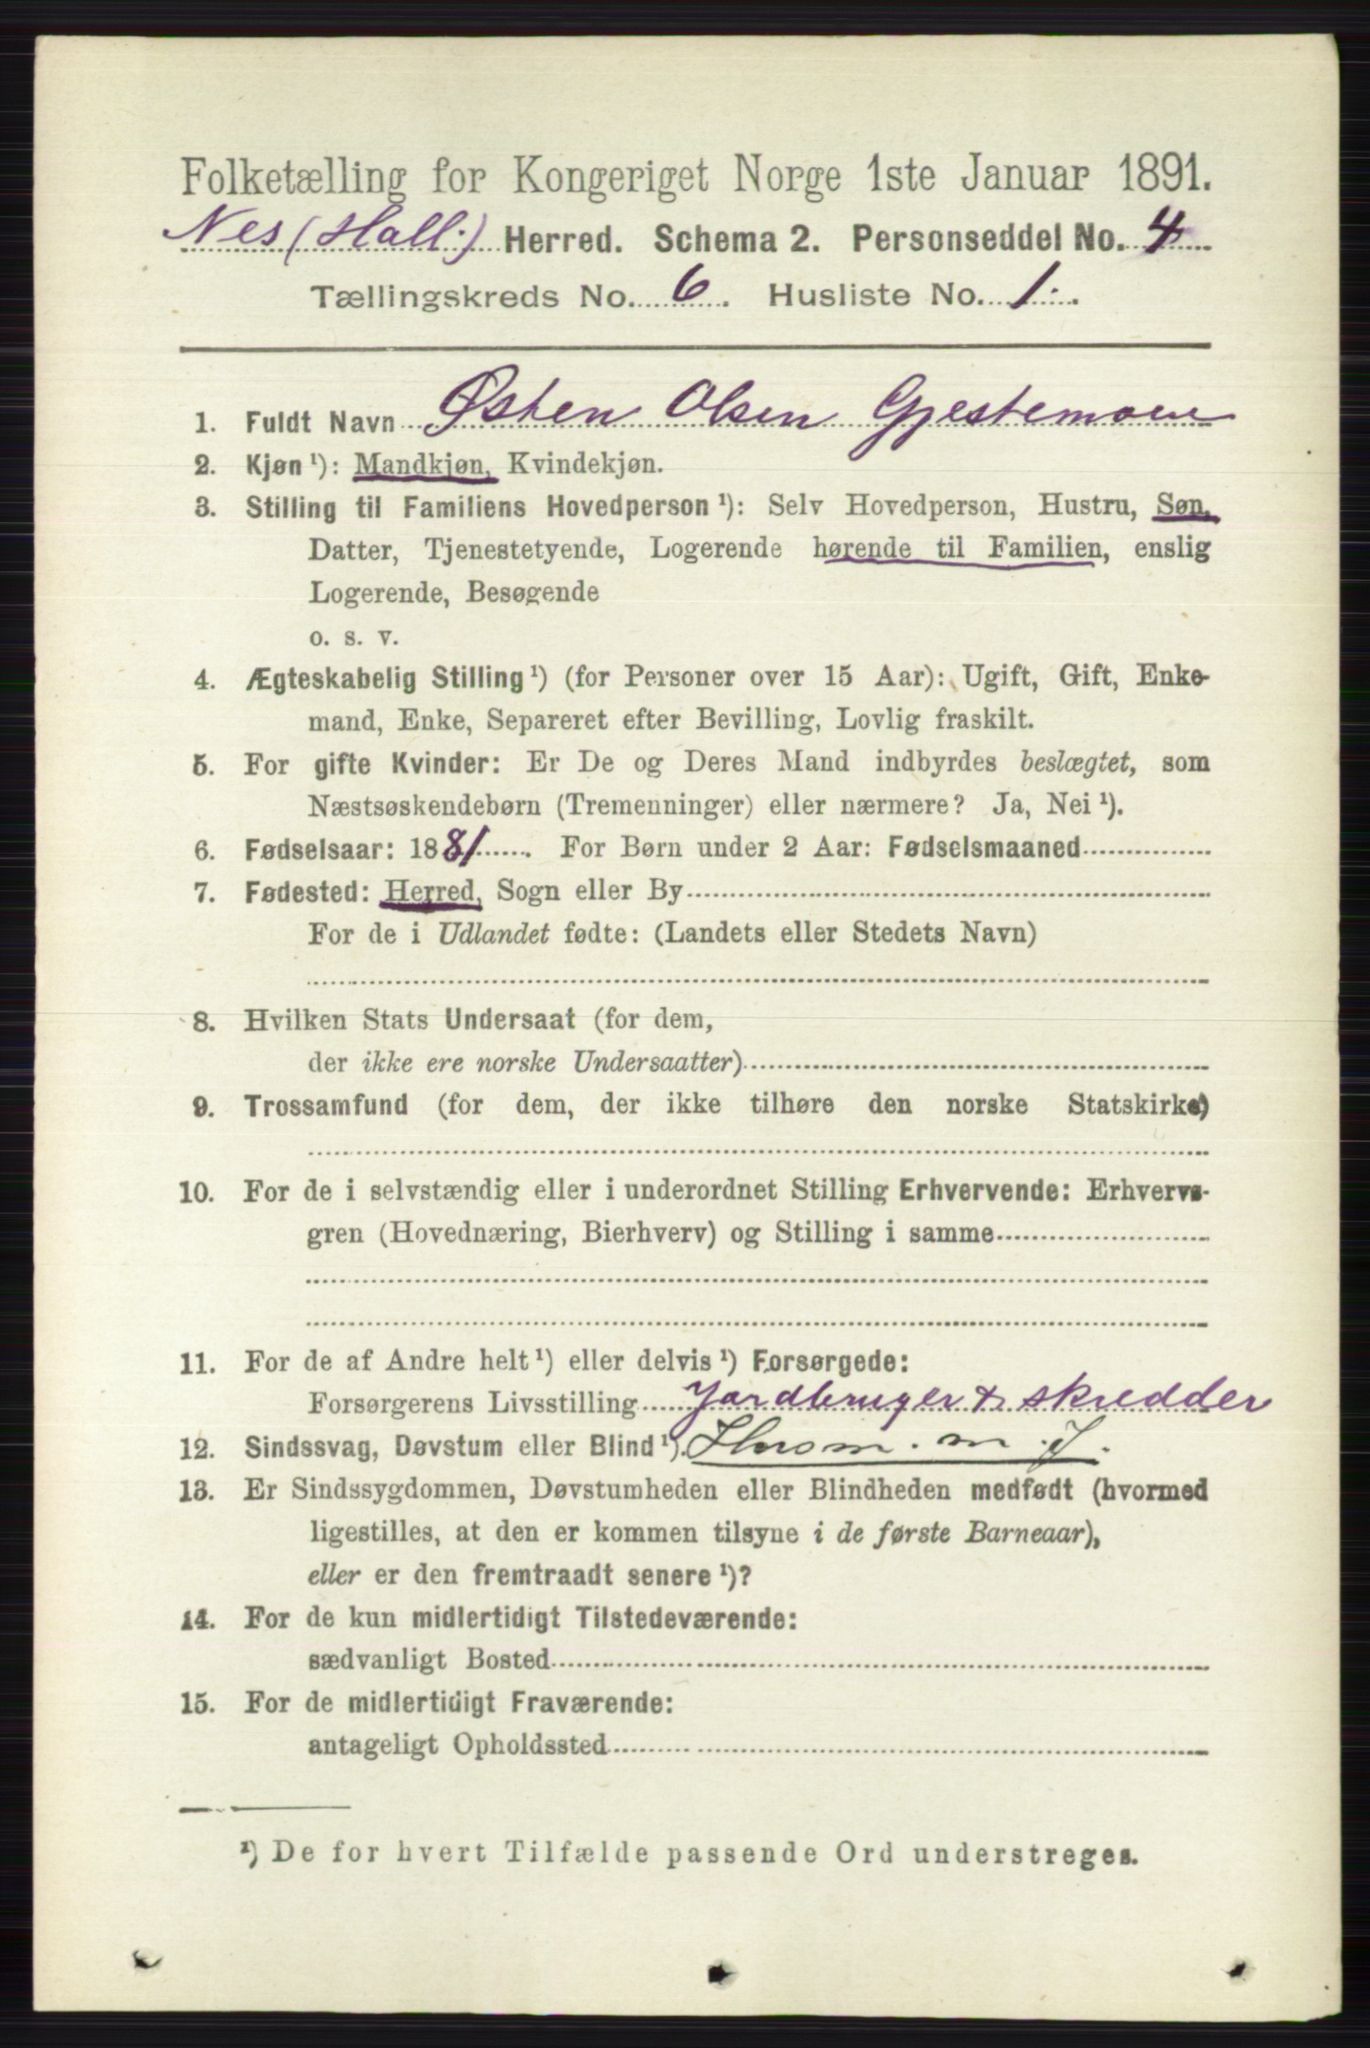 Folketælling for Kongeriget Norge 1ste Januar 1891.
Nes (Hall.) Herred. Schema 2. Personseddel No. 4
Tællingskreds No. 6. Husliste No. 1.
1. Fuldt Navn Østen Olsen Gjestemoen
2. Kjøn ¹): Mandkjøn, Kvindekjøn.
3. Stilling til Familiens Hovedperson ¹): Selv Hovedperson, Hustru, Søn,
Datter, Tjenestetyende, Logerende hørende til Familien, enslig
Logerende, Besøgende
o. s. v.
4. Ægteskabelig Stilling ¹) (for Personer over 15 Aar): Ugift, Gift, Enke-
mand, Enke, Separeret efter Bevilling, Lovlig fraskilt.
5. For gifte Kvinder: Er De og Deres Mand indbyrdes beslægtet, som
Næstsøskendebørn (Tremenninger) eller nærmere? Ja, Nei ¹).
6. Fødselsaar: 1881. For Børn under 2 Aar: Fødselsmaaned
7. Fødested: Herred, Sogn eller By
For de i Udlandet fødte: (Landets eller Stedets Navn)
8. Hvilken Stats Undersaat (for dem,
der ikke ere norske Undersaatter)
9. Trossamfund (for dem, der ikke tilhøre den norske Statskirke)
10. For de i selvstændig eller i underordnet Stilling Erhvervende: Erhvervs-
gren (Hovednæring, Bierhverv) og Stilling i samme
11. For de af Andre helt ¹) eller delvis ¹) Forsørgede:
Forsørgerens Livsstilling Jordbruger & skredder
12. Sindssvag, Døvstum eller Blind ¹). m. J.
13. Er Sindssygdommen, Døvstumheden eller Blindheden medfødt (hvormed
ligestilles, at den er kommen tilsyne i de første Barneaar),
eller er den fremtraadt senere ¹)?
14. For de kun midlertidigt Tilstedeværende:
sædvanligt Bosted
15. For de midlertidigt Fraværende:
antageligt Opholdssted
¹) De for hvert Tilfælde passende Ord understreges.